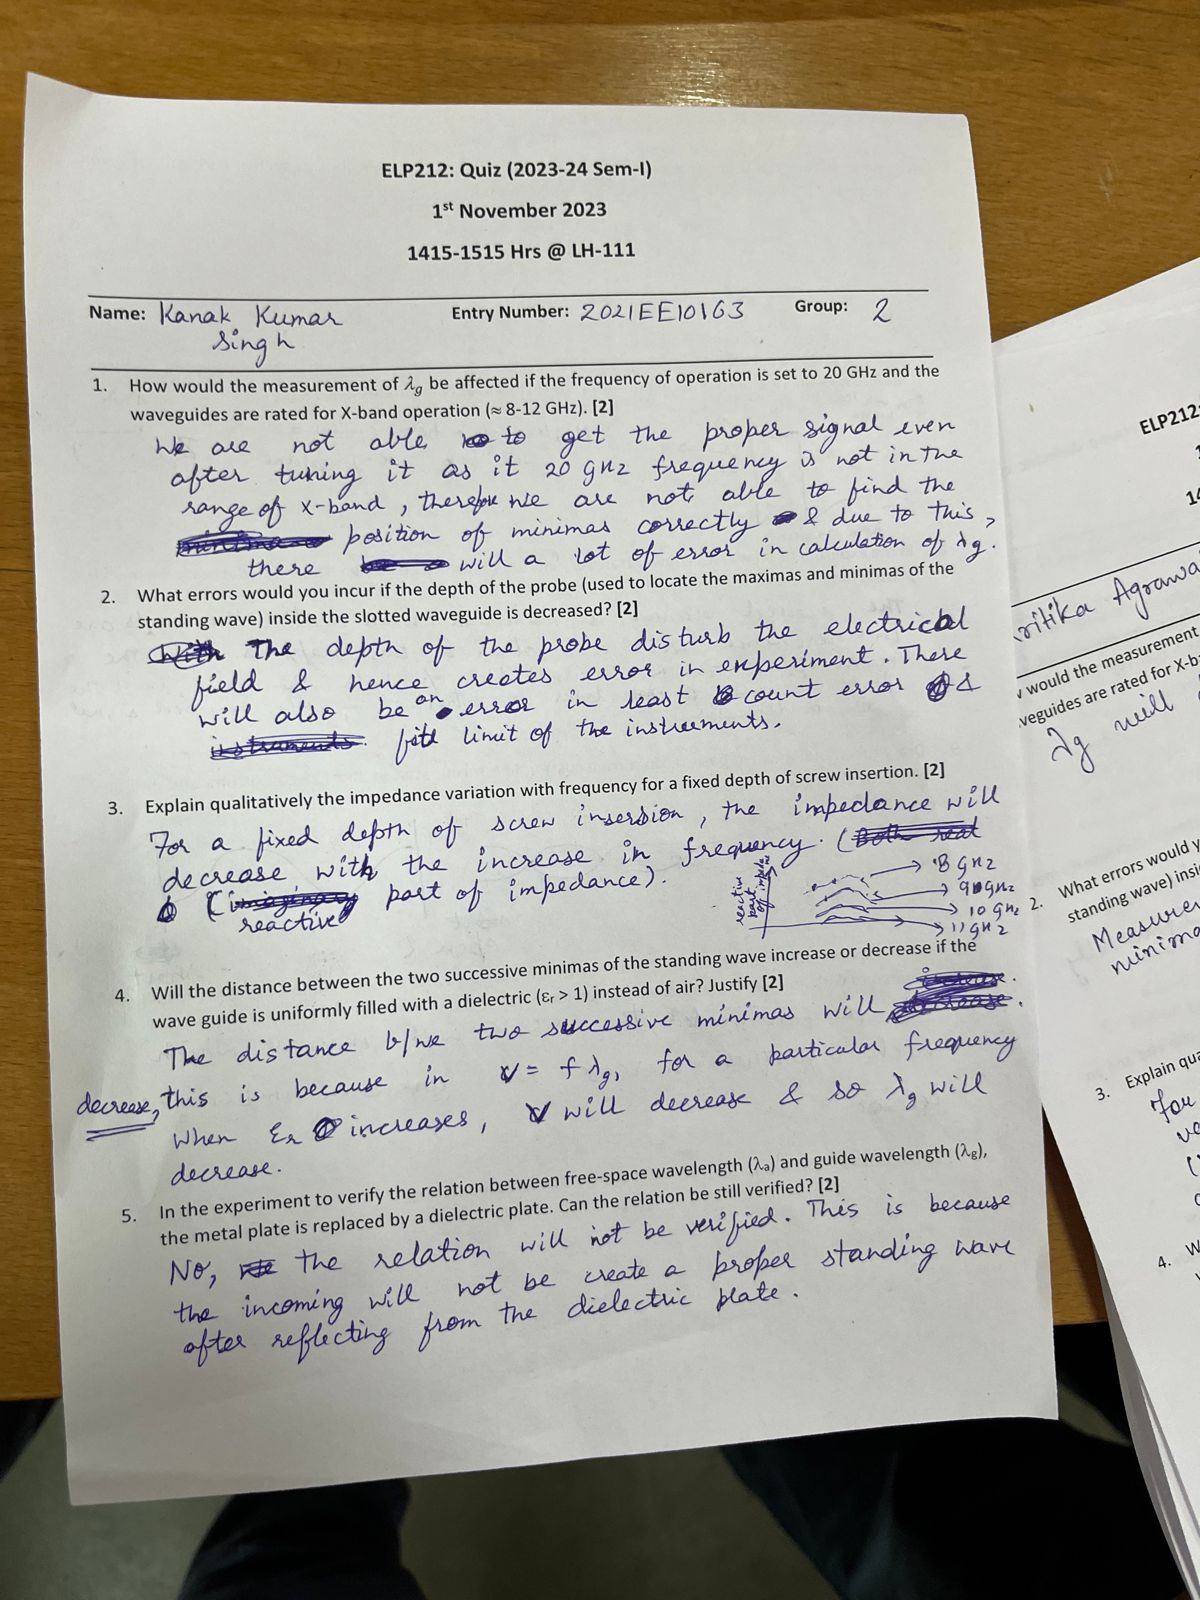 ELP212: Quiz (2023-24 Sem-I)
1st November 2023
1415-1515 Hrs @ LH-111
Name: Kanak Kumar Entry Number: 2021EE10163 Group: 2
Singh
1. How would the measurement of λg be affected if the frequency of operation is set to 20 GHz and the
waveguides are rated for X-band operation (≈ 8-12 GHz). [2]
We are not able to get the proper signal even
after tuning it as it 20 GHz frequency is not in the
range of X-band, therefore we are not able to find the
position of minimas correctly & due to this,
there will a lot of error in calculation of λg.
2. What errors would you incur if the depth of the probe (used to locate the maximas and minimas of the
standing wave) inside the slotted waveguide is decreased? [2]
The depth of the probe disturb the electrical
field & hence creates error in experiment. There
will also be an error in least count error &
limit of the instruements.
3. Explain qualitatively the impedance variation with frequency for a fixed depth of screw insertion. [2]
For a fixed depth of screw insersion, the impedance will
decrease with the increase in frequency. (
( part of impedance).
reactive
reactive part of impeda
8 GHz
9 GHz
10 GHz
11 GHz
4. Will the distance between the two successive minimas of the standing wave increase or decrease if the
wave guide is uniformly filled with a dielectric (εr > 1) instead of air? Justify [2]
The distance b/we two successive minimas will
decrease, this is because in v = f λg, for a particular frequency
When εr increases, v will decrease & so λg will
decrease.
5. In the experiment to verify the relation between free-space wavelength (λa) and guide wavelength (λg),
the metal plate is replaced by a dielectric plate. Can the relation be still verified? [2]
No, the relation will not be verified. This is because
the incoming will not be create a proper standing wave
after reflecting from the dielectric plate.
ELP212:
1
14
ritika Agrawa
would the measurement
veguides are rated for X-b
λg will
2. What errors would y
standing wave) insi
Measure
minima
3. Explain qua
For
4. W